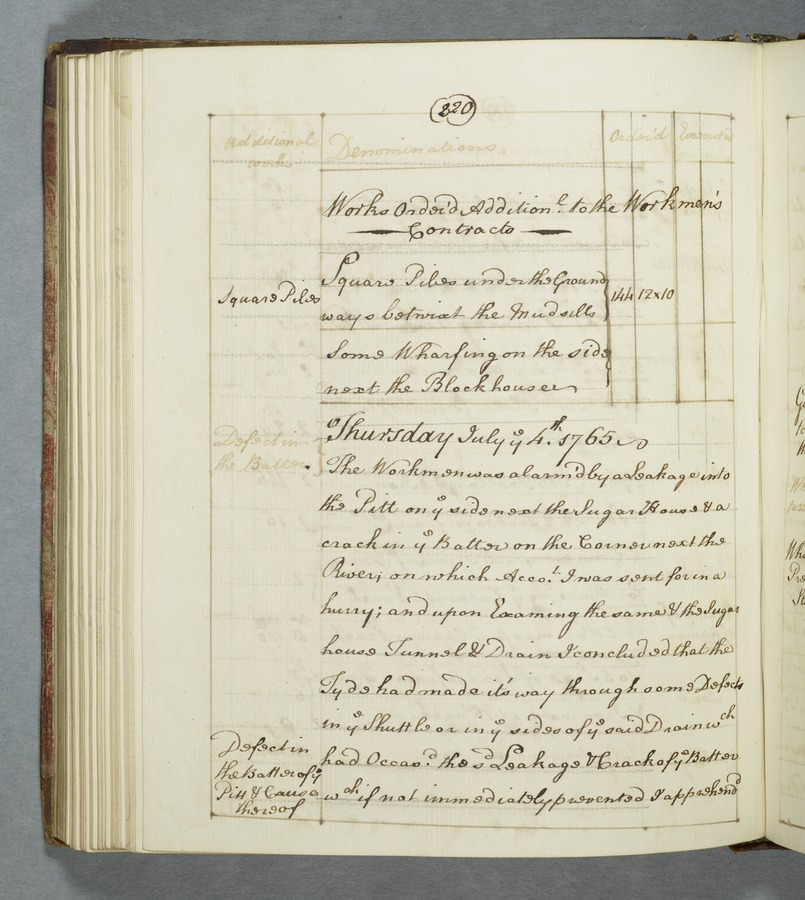 220
Additional
works
Denominations
Order'd
Executed
Works Order'd Addition.l to the Workmen's
Contracts
Square Piles
Square Piles under the Ground
ways betwixt the Mudsills
144 12x10
Some Wharfing on the side
next the Blockhouse
Thursday July ye 4.th 1765
Defect in
the Batter
The Workmen was alarm'd by a Leakage into
the Pitt on ye side next the Sugar House & a
crack in ye Batter on the Corner next the
River; on which Acco.t I was sent for in a
hurry; and upon Examing the same & the Sugar
house Tunnel & Drain I concluded that the
Tyde had made it's way through some Defects
in ye Shuttle or in ye sides of ye said Drain wch
had Occas.d the sd Leakage & Crack of ye Batter
wch if not immediately prevented I apprehend
Defect in
the Batter of ye
Pitt & Cause
thereof